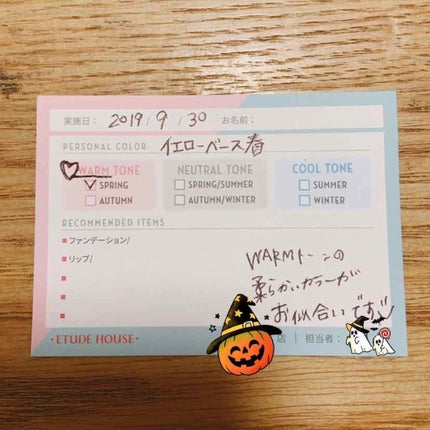 実施日： 2019 / 9 / 30 お名前：
PERSONAL COLOR イエローベース春
WARM TONE NEUTRAL TONE COOL TONE
SPRING SPRING/SUMMER SUMMER
AUTUMN AUTUMN/WINTER WINTER
RECOMMENDED ITEMS
ファンデーション/
リップ/
WARMトーンの
柔らかいカラーが
お似合いです
・ETUDE HOUSE・ 店 | 担当者：